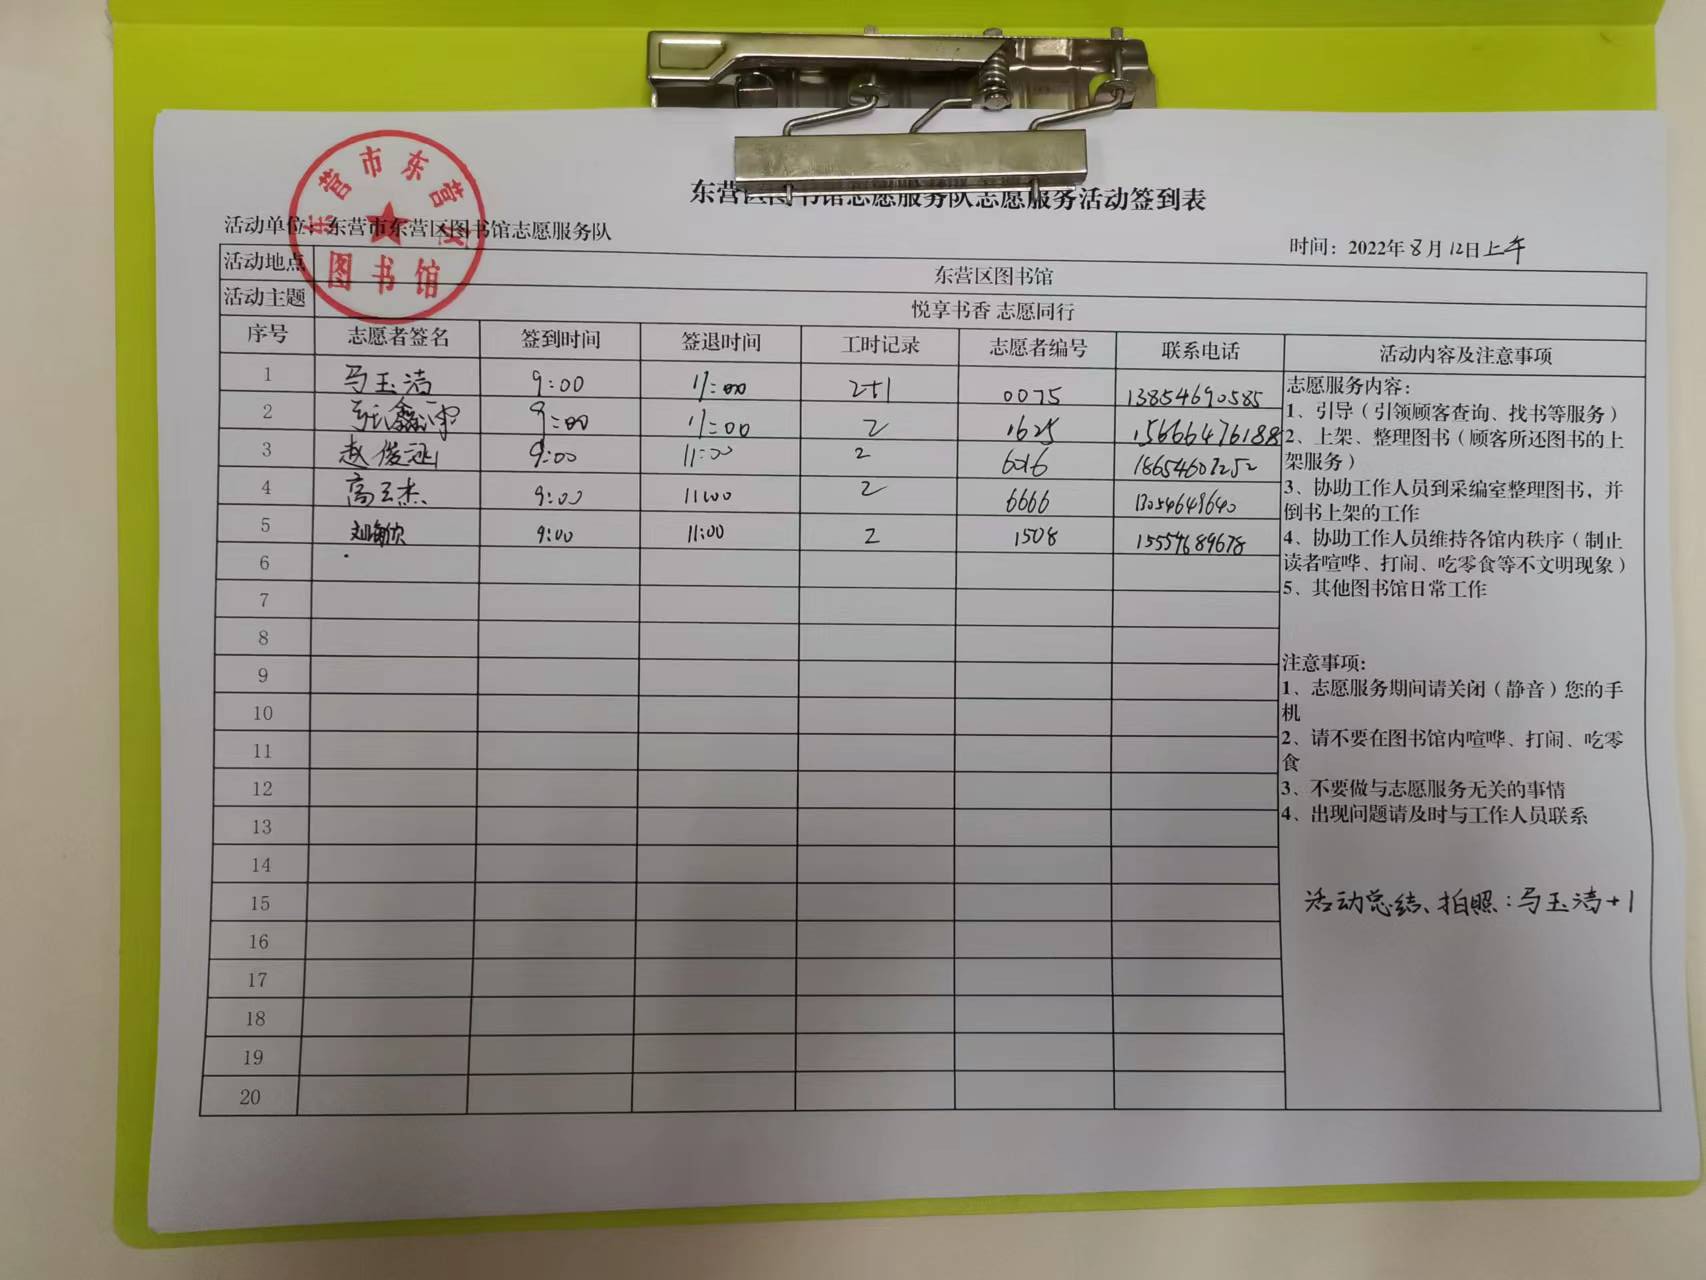 东营区图书馆志愿服务队志愿服务活动签到表
东营市东营区
图书馆
活动单位：东营市东营区图书馆志愿服务队
时间：2022年8月12日上午
活动地点 东营区图书馆
活动主题 悦享书香 志愿同行
序号 志愿者签名 签到时间 签退时间 工时记录 志愿者编号 联系电话 活动内容及注意事项
1 马玉洁 9:00 11:00 2+1 0075 13854690585
2 9:00 11:00 2 1625 15666476188
3 赵俊涵 9:00 11:00 2 6016
4 高云杰 9:00 11:00 2 6666 13054649640
5 9:00 11:00 2 1508
6
7
8
9
10
11
12
13
14
15
16
17
18
19
20
志愿服务内容：
1、引导（引领顾客查询、找书等服务）
2、上架、整理图书（顾客所还图书的上
架服务）
3、协助工作人员到采编室整理图书，并
倒书上架的工作
4、协助工作人员维持各馆内秩序（制止
读者喧哗、打闹、吃零食等不文明现象）
5、其他图书馆日常工作
注意事项：
1、志愿服务期间请关闭（静音）您的手
机
2、请不要在图书馆内喧哗、打闹、吃零
食
3、不要做与志愿服务无关的事情
4、出现问题请及时与工作人员联系
活动总结、拍照：马玉洁+1